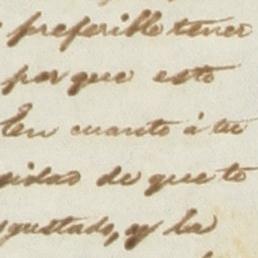 preferible tener
por que esto
En cuanto á tu
sidad de que te
gustado, y la